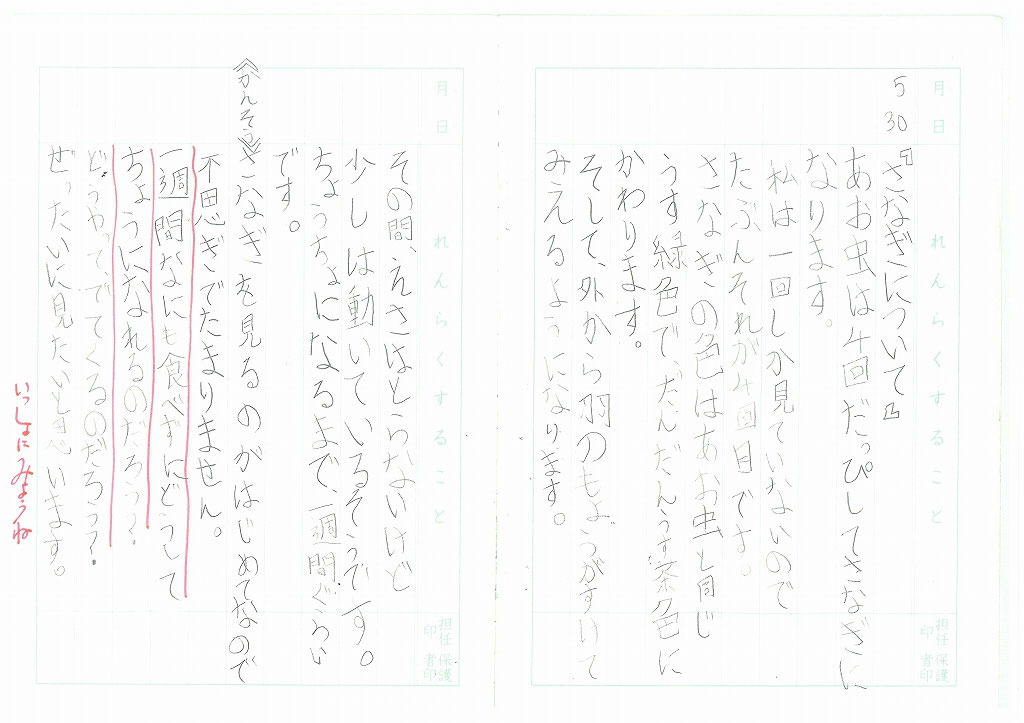 月 日
れんらくすること
担任印
保護者印
5 30
『さなぎについて』
あお虫は4回だっぴしてさなぎに
なります。
私は一回しか見ていないので
たぶんそれが4回目です。
さなぎの色はあお虫と同じ
うす緑色で、だんだんうす茶色に
かわります。
そして、外から羽のもようがすいて
みえるようになります。
月 日
れんらくすること
担任印
保護者印
その間、えさはとらないけど
少しは動いているそうです。
ちょうちょになるまで、一週間ぐらい
です。
《かんそう》さなぎを見るのがはじめてなので
不思ぎでたまりません。
一週間なにも食べずにどうして
ちょうになれるのだろう?
どうやって、でてくるのだろう?
ぜったいに見たいと思います。
いっしょにみようね